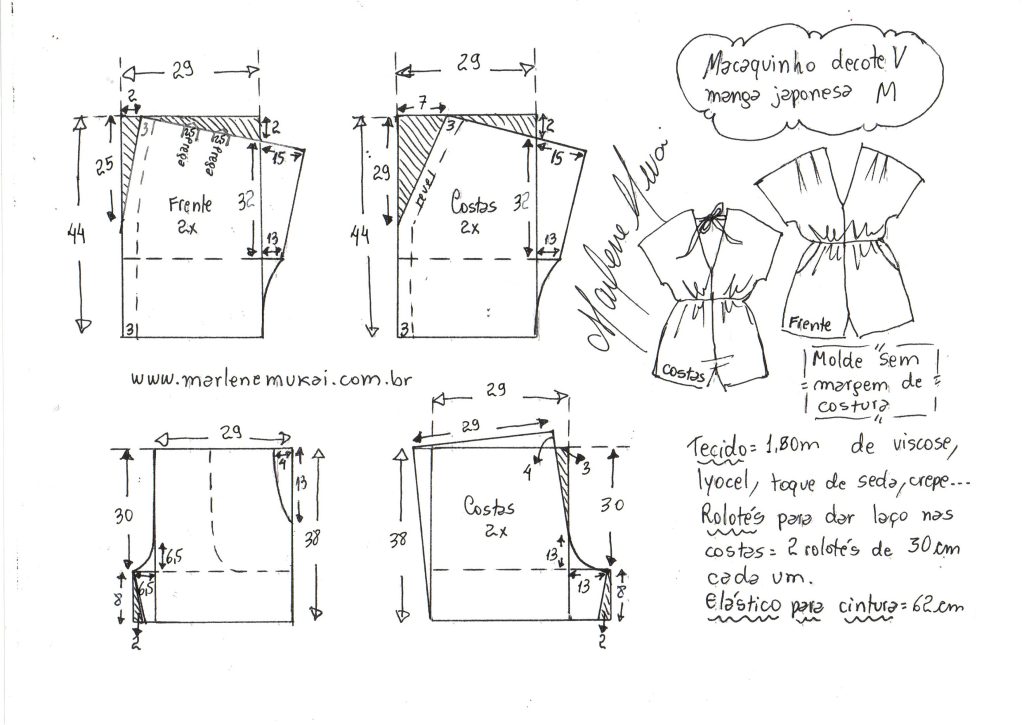 Macaquinho decote V
manga japonesa M
29
2
25
44
3
2,5
prega
2,5
prega
2
15
Frente
2x
32
13
3
29
7
29
44
3
2
15
Costas
2x
32
13
3
Marlene Mukai
Frente
Costas
Molde sem
margem de
costura
www.marlenemukai.com.br
29
4
13
30
38
6,5
6,5
8
2
29
29
4
3
Costas
2x
38
30
13
13
8
2
Tecido = 1,80m de viscose,
lyocel, toque de seda, crepe...
Rolotés para dar laço nas
costas = 2 rolotés de 30 cm
cada um.
elástico para cintura = 62 cm